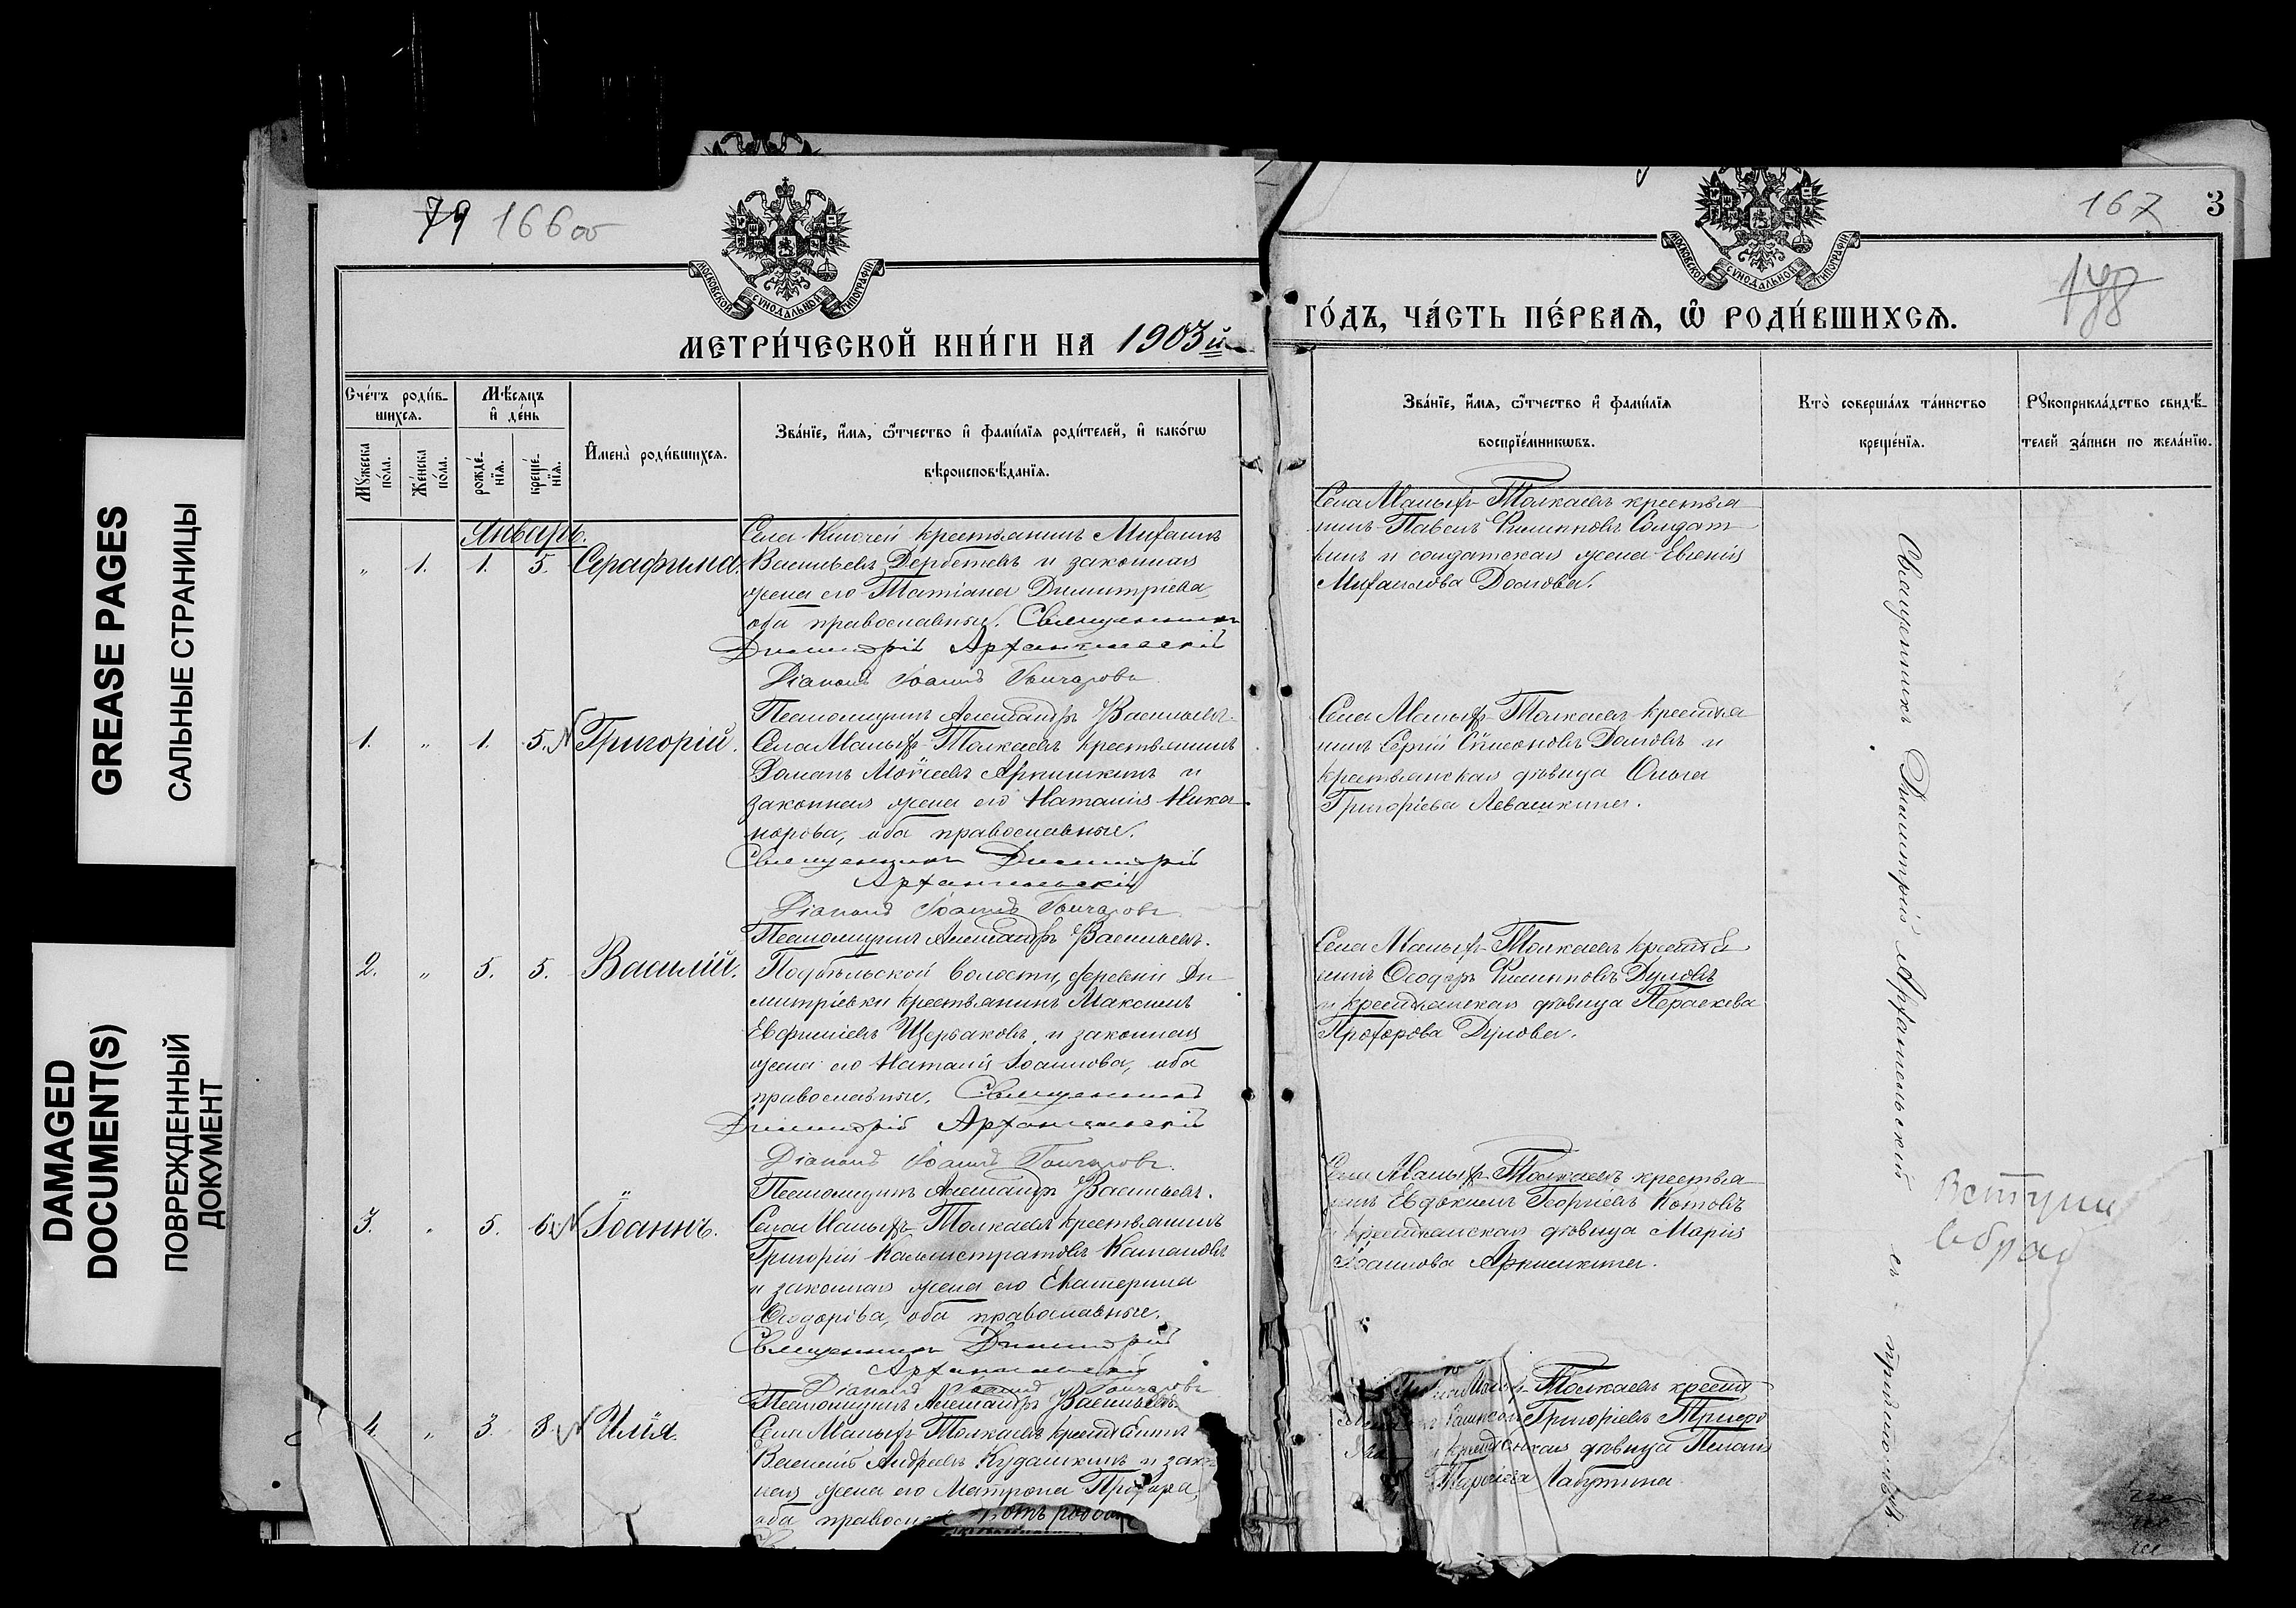 GREASE PAGES
САЛЬНЫЕ СТРАНИЦЫ
DAMAGED
DOCUMENT(S)
ПОВРЕЖДЕННЫЙ
ДОКУМЕНТ
79 166об
МОСКОВСКОЙ СѴНОДАЛЬНОЙ ТИПОГРАФІИ
МЕТРИ́ЧЕСКОЙ КНИ́ГИ НА 1903й
Сче́тъ роди́в-
шихсѧ.
Мꙋжеска по́ла.
Же́нска по́ла.
Мѣ́сѧцъ
и҆ де́нь
рожде́-
нїѧ.
креще́-
нїѧ.
И҆мена̀ роди́вшихсѧ.
Зва́нїе, и҆́мѧ, ѻ҆́тчество и҆ фами́лїѧ роди́телей, и҆ како́гѡ
вѣроисповѣ́данїѧ.
Январь.
" 1. 1. 5. Серафима.
Села Ключей крестьянинъ Михаилъ
Васильевъ Дербетевъ и законная
жена его Татіана Димитріева,
оба православные. Священникъ
Димитрій Архангельскій
Діаконъ Іоаннъ Гончаровъ
Псаломщикъ Александръ Васильевъ.
1. " 1. 5. Григорій.
Села Малыхъ-Толкаевъ крестьянинъ
Романъ Моѵсеевъ Аркишкинъ и
законная жена его Наталія Ника-
норова, оба православные.
Священникъ Димитрій
Архангельскій
Діаконъ Іоаннъ Гончаровъ
Псаломщикъ Александръ Васильевъ.
2. " 5. 5. Василій.
Подбѣльской волости, деревни Ди-
митріевки крестьянинъ Максимъ
Евфиміевъ Щербаковъ, и законная
жена его Наталія Іоаннова, оба
православные. Священникъ
Димитрій Архангельскій
Діаконъ Іоаннъ Гончаровъ.
Псаломщикъ Александръ Васильевъ.
3. " 5. 6. Іоаннъ.
Села Малыхъ-Толкаевъ крестьянинъ
Григорій Каллистратовъ
и законная жена его Екатерина
Ѳеодорова, оба православные.
Священникъ Димитрій
Архангельскій
Діаконъ Іоаннъ Гончаровъ
Псаломщикъ Александръ Васильевъ.
4. " 3. 8. Илія.
Села Малыхъ-Толкаевъ
Василій Андреевъ Кудашкинъ и зак
ная жена его Матрона
оба
167 3
МОСКОВСКОЙ СѴНОДАЛЬНОЙ ТИПОГРАФІИ
ГО́ДЪ, ЧА́СТЬ ПЕ́РВАѦ, Ѡ҆ РОДИ́ВШИХСѦ.
Зва́нїе, и҆́мѧ, ѻ҆́тчество и҆ фами́лїѧ
воспрїе́мникѡвъ.
Кто̀ соверша́лъ та́инство
креще́нїѧ.
Рꙋкоприкла́дство свидѣ́-
телей за́писи по жела́нїю.
Села Малыхъ-Толкаевъ крестья
нинъ Павелъ Филипповъ Солдат
кинъ и солдатская жена Евгенія
Михайлова Долгова.
Села Малыхъ-Толкаевъ крестья
нинъ Сергій Сѵмеоновъ и
крестьянская дѣвица Ольга
Григоріева Левашкина.
Села Малыхъ-Толкаевъ
Ѳеодоръ Филипповъ Дуловъ
и крестьянская дѣвица Параскева
Прохорова Дулова.
Села Малыхъ-Толкаевъ крестья
нинъ Евдокимъ Георгіевъ Котовъ
и крестьянская дѣвица Марія
Іоаннова Аркишкина.
Толкаевъ
Григоріевъ
дѣвица
Лабутина
Священникъ Димитрій Архангельскій съ причтомъ.
Вступи
в брак